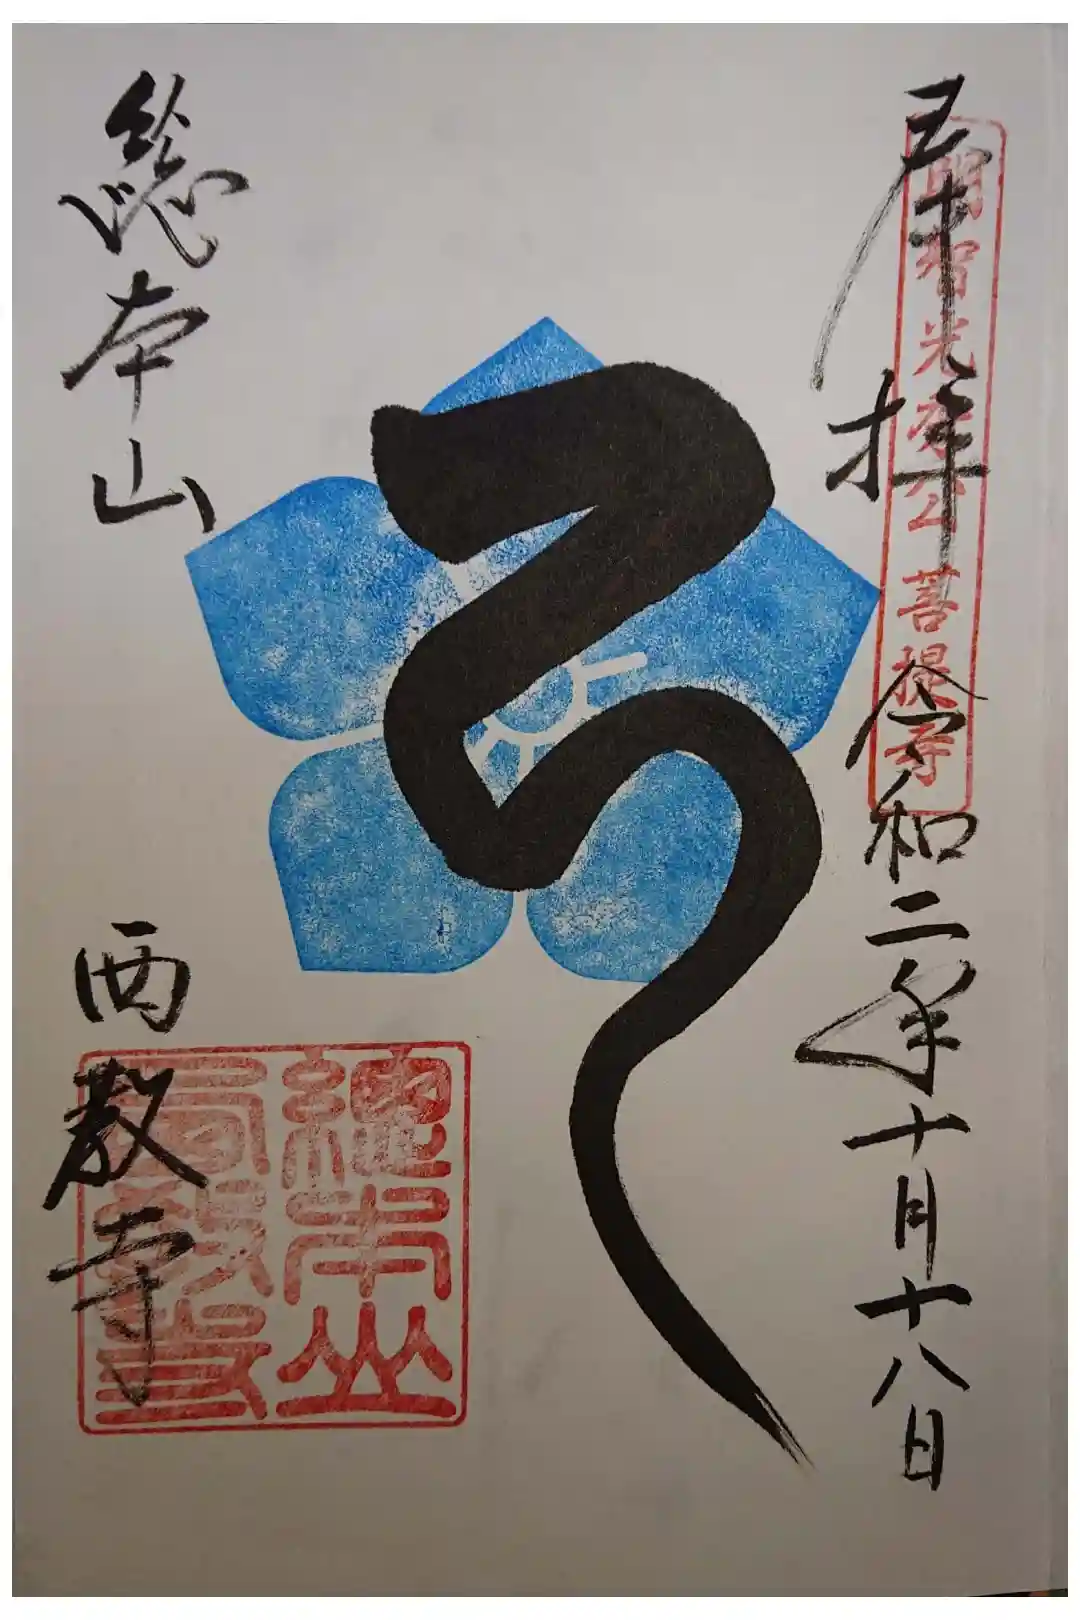 奉拝
令和二年十月十八日
明智光秀公菩提寺
総本山
西教寺
總本山
西教寺